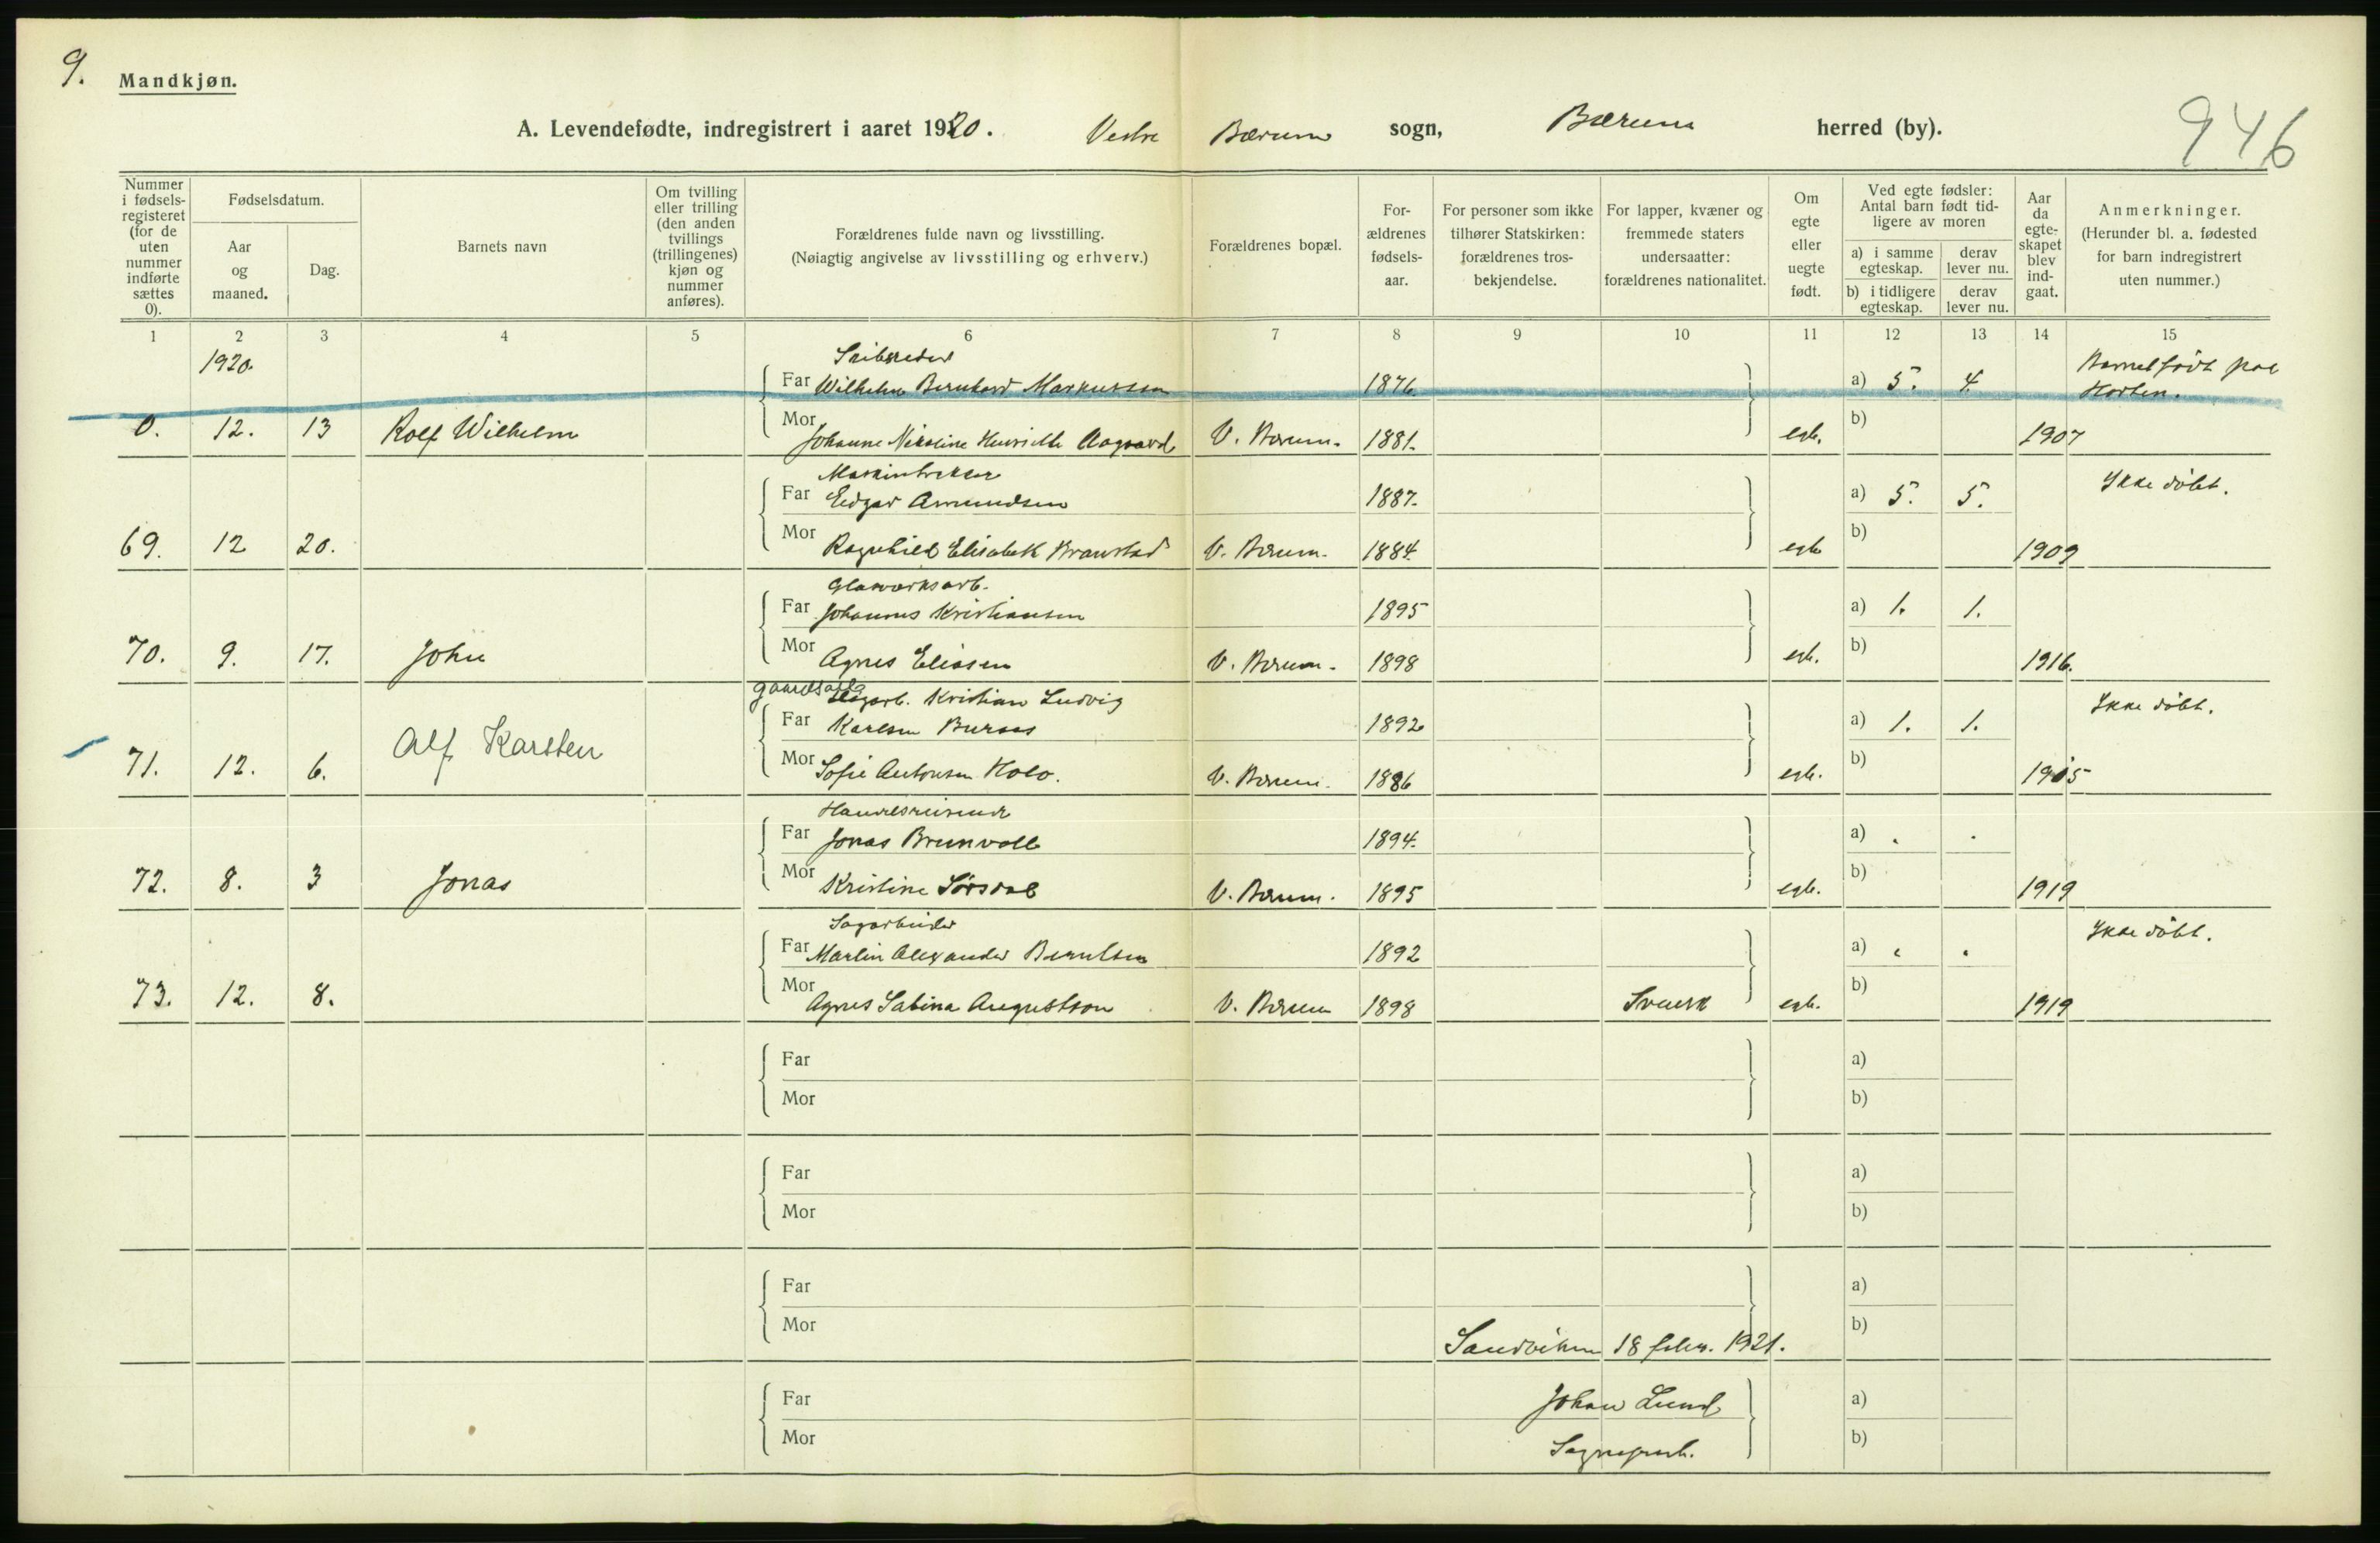 9.
Mandkjøn.
A. Levendefødte, indregistrert i aaret 1920. Vestre Bærum sogn, Bærum herred (by).
946
Nummer i fødsels-registeret (for de uten nummer indførte sættes 0).
Fødselsdatum.
Aar og maaned.
Dag.
Barnets navn
Om tvilling eller trilling (den anden tvillings (trillingenes) kjøn og nummer anføres).
Forældrenes fulde navn og livsstilling.
(Nøiagtig angivelse av livsstilling og erhverv.)
Forældrenes bopæl.
For-ældrenes fødsels-aar.
For personer som ikke tilhører Statskirken: forældrenes tros-bekjendelse.
For lapper, kvæner og fremmede staters undersaatter: forældrenes nationalitet.
Om egte eller uegte født.
Ved egte fødsler: Antal barn født tid-ligere av moren
a) i samme egteskap.
derav lever nu.
b) i tidligere egteskap.
derav lever nu.
Aar da egte-skapet blev ind-gaat.
Anmerkninger.
(Herunder bl. a. fødested for barn indregistrert uten nummer.)
1 2 3 4 5 6 7 8 9 10 11 12 13 14 15
1920. Skibsreder Barnet født paa
Far Wilhelm Bernhard Markussen 1876. a) 5. 4. Horten.
0. 12. 13 Rolf Wilhelm Mor Johanne Nikoline Henriette Aagaard V. Bærum. 1881. egte. b) 1907
Maskintrykker Ikke døbt.
Far Eidgar Amundsen 1887. a) 5. 5.
69. 12 20. Mor Ragnhild Elisabeth Branstad V. Bærum. 1884. egte b) 1909
Glasværksarb.
Far Johannes Kristiansen 1895 a) 1. 1.
70. 9. 17. John Mor Agnes Eliasen V. Bærum. 1898 egte. b) 1916.
gaardsarb. Kristian Ludvig Ikke døbt.
Far Karlsen Buraas 1892 a) 1. 1.
71. 12. 6. Alf Karsten Mor Sofie Antonsen Holo. V. Bærum. 1886 egte. b) 1915
Handelsreisende
Far Jonas Brunvoll 1894. a) . .
72. 8. 3 Jonas Mor Kristine Sørsdal V. Bærum. 1895 egte. b) 1919
Sagarbeider Ikke døbt.
Far Martin Alexander Berntsen 1892 a) . .
73. 12. 8. Mor Agnes Sabina Augustson V. Bærum 1898 Svensk egte. b) 1919
Far a)
Mor b)
Far a)
Mor b)
Far a)
Mor b)
Sandviken 18 febr. 1921.
Far Johan Lund a)
Mor Sogneprest. b)